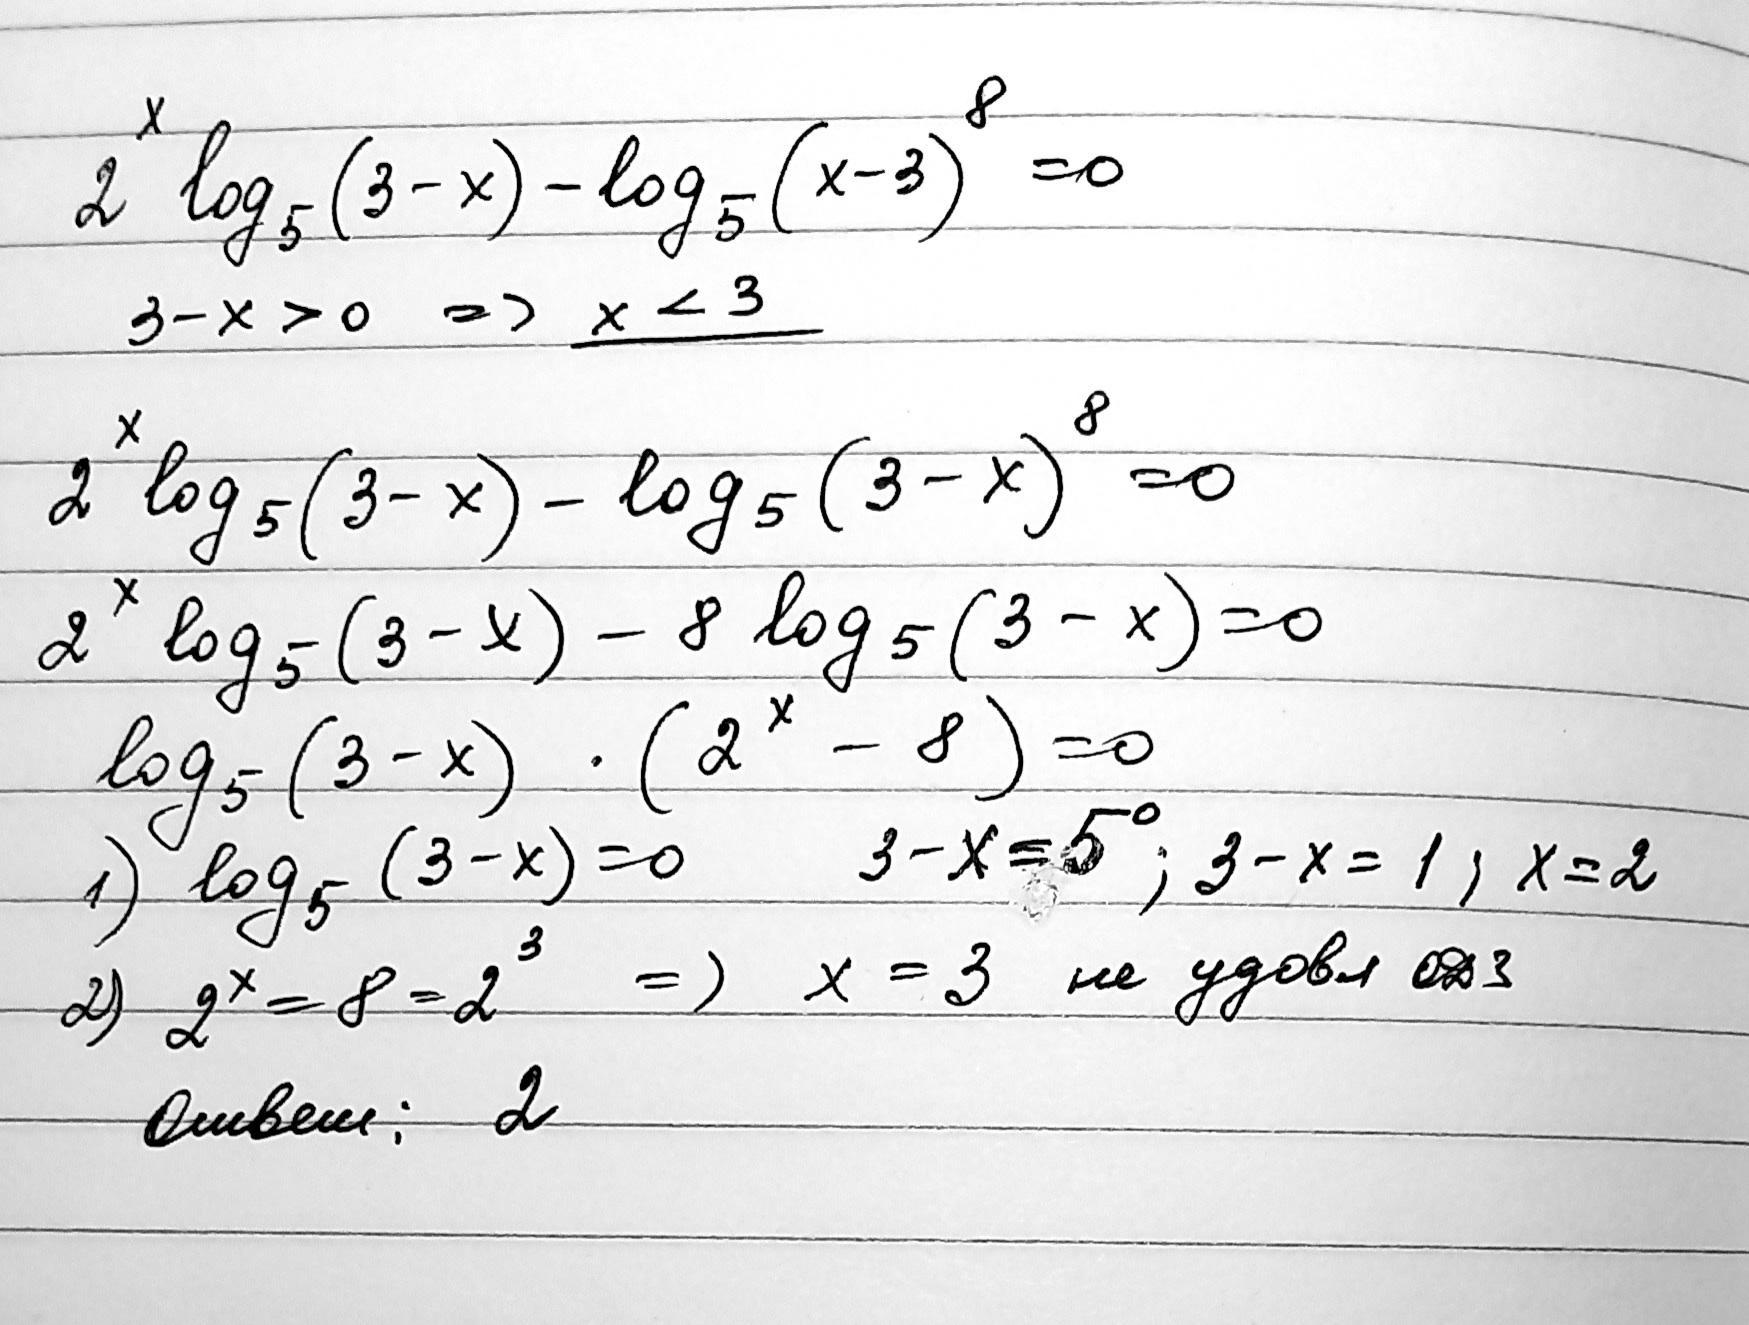 2^x log_5(3-x) - log_5(x-3)^8 = 0
3-x > 0 => x < 3
2^x log_5(3-x) - log_5(3-x)^8 = 0
2^x log_5(3-x) - 8 log_5(3-x) = 0
log_5(3-x) · (2^x - 8) = 0
1) log_5(3-x) = 0 3-x = 5^0; 3-x = 1; x = 2
2) 2^x = 8 = 2^3 => x = 3 не удовл ОДЗ
Ответ: 2